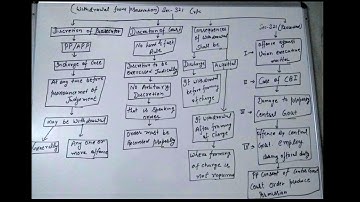 (Withdrawal from Prosecution) Sec-321 CrPc
Discretion of Prosecutor
PP/APP
Incharge of Case
At any time before
pronouncement of
Judgement
may be withdrawal
Generally
Any one or
more offence
Discretion of Court
No hard & fast
Rule
Discretion to be
exercised Judicially
No Arbitrary
Discretion
that is speaking
order
Order must be
Reasoned properly
Consequences
of withdrawal
shall be
Discharge
Acquittal
If withdrawal
Before framing
of charge
If withdrawal
After framing of
charge
When framing
of charge is
not required
Sec-321
I
offence against
Union executive
matter
II
Case of CBI
III
Damage to property
Central Govt
IV
Offence by central
Govt employ
during official duty
PP Consent of Central Govt
Court order produce
Permission